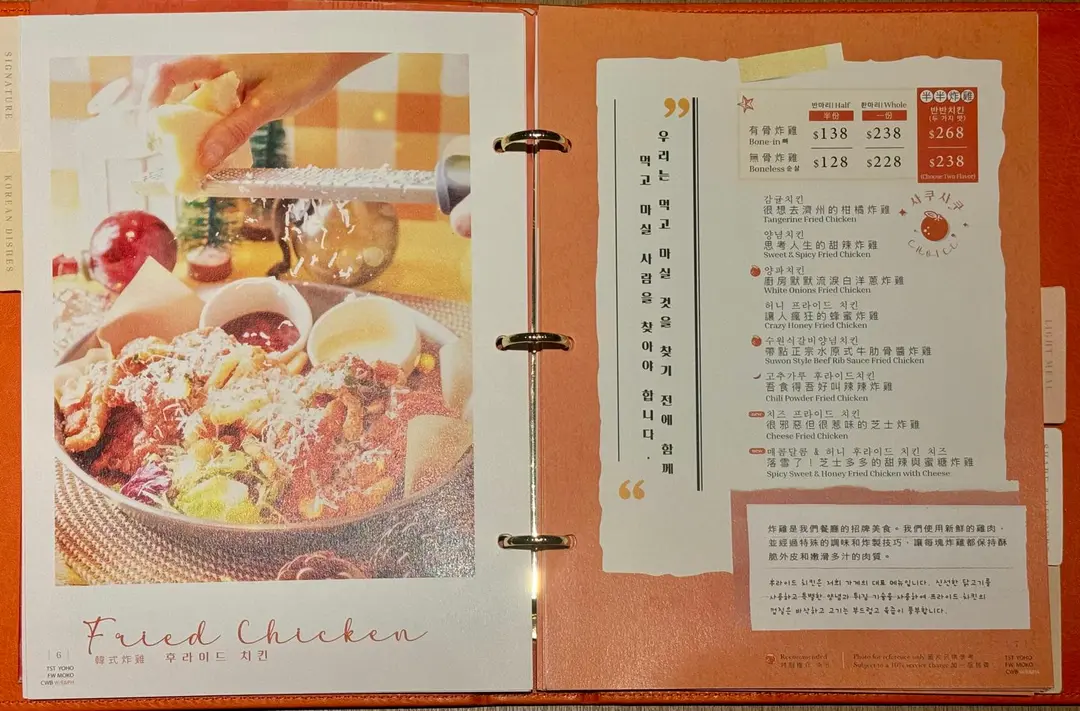 SIGNATURE
KOREAN DISHES
Fried Chicken
韓式炸雞 후라이드 치킨
| 6 |
TST YOHO
FW MOKO
CWB
우리는 먹고 마실 것을 찾기 전에 함께
먹고 마실 사람을 찾아야 합니다.
반마리|Half
半份
한마리|Whole
一份
半半炸雞
반반치킨
(두 가지 맛)
有骨炸雞
Bone-in 뼈
$138
$238
$268
無骨炸雞
Boneless 순살
$128
$228
$238
(Choose Two Flavor)
사쿠사쿠
감귤치킨
很想去濟州的柑橘炸雞
Tangerine Fried Chicken
양념치킨
思考人生的甜辣炸雞
Sweet & Spicy Fried Chicken
양파치킨
廚房默默流淚白洋蔥炸雞
White Onions Fried Chicken
허니 프라이드 치킨
讓人瘋狂的蜂蜜炸雞
Crazy Honey Fried Chicken
수원식갈비양념치킨
帶點正宗水原式牛肋骨醬炸雞
Suwon Style Beef Rib Sauce Fried Chicken
고추가루 후라이드치킨
吾食得吾好叫辣辣炸雞
Chili Powder Fried Chicken
치즈 프라이드 치킨
很邪惡但很惹味的芝士炸雞
Cheese Fried Chicken
매콤달콤 & 허니 후라이드 치킨 치즈
落雪了！芝士多多的甜辣與蜜糖炸雞
Spicy Sweet & Honey Fried Chicken with Cheese
炸雞是我們餐廳的招牌美食。我們使用新鮮的雞肉，
並經過特殊的調味和炸製技巧，讓每塊炸雞都保持酥
脆外皮和嫩滑多汁的肉質。
후라이드 치킨은 저희 가게의 대표 메뉴입니다. 신선한 닭고기를
사용하고 특별한 양념과 튀김 기술을 사용하여 프라이드 치킨의
껍질은 바삭하고 고기는 부드럽고 육즙이 풍부합니다.
Recommended
Photo for reference only 圖片只供參考
Subject to a 10% service charge 加一服務費
TST YOHO
FW MOKO
CWB
LIGHT MEAL